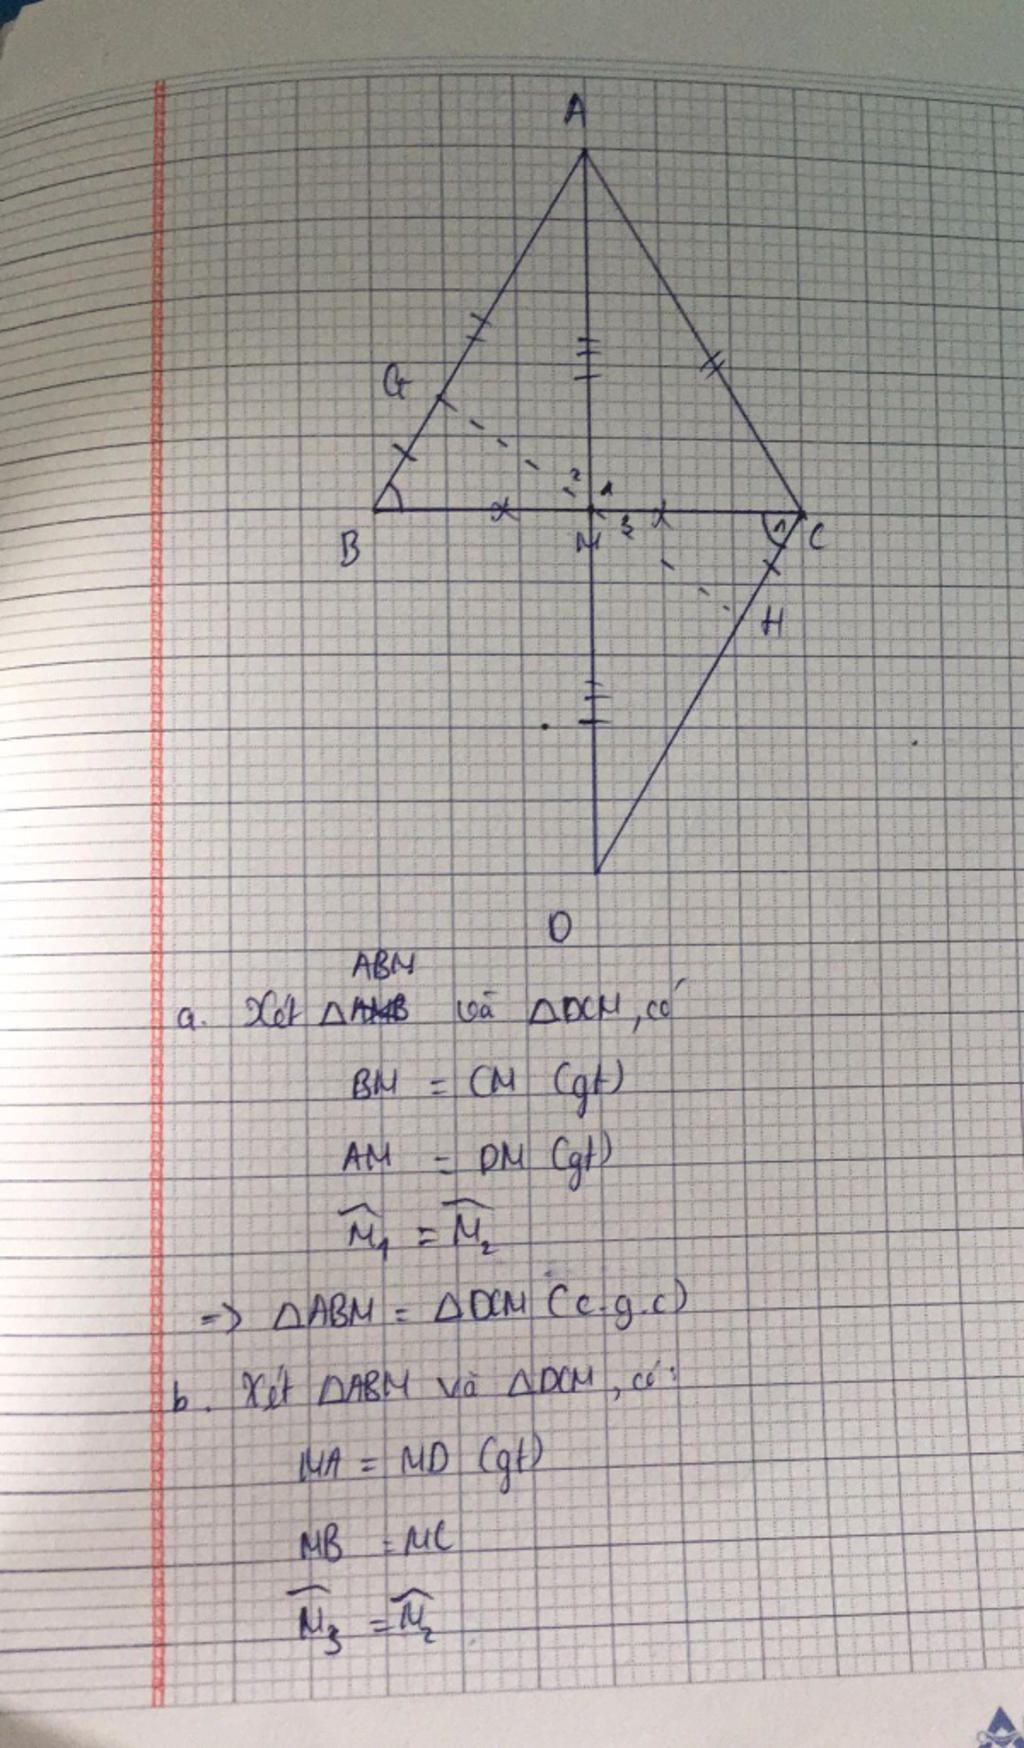 A
G
2 1
B
M
3
1
C
H
D
ABM
a. Xét ΔAMB và ΔDCM, có
BM = CM (gt)
AM = DM (gt)
M̂₁ = M̂₂
=> ΔABM = ΔDCM (c.g.c)
b. Xét ΔABM và ΔDCM, có:
MA = MD (gt)
MB = MC
M̂₃ = M̂₂